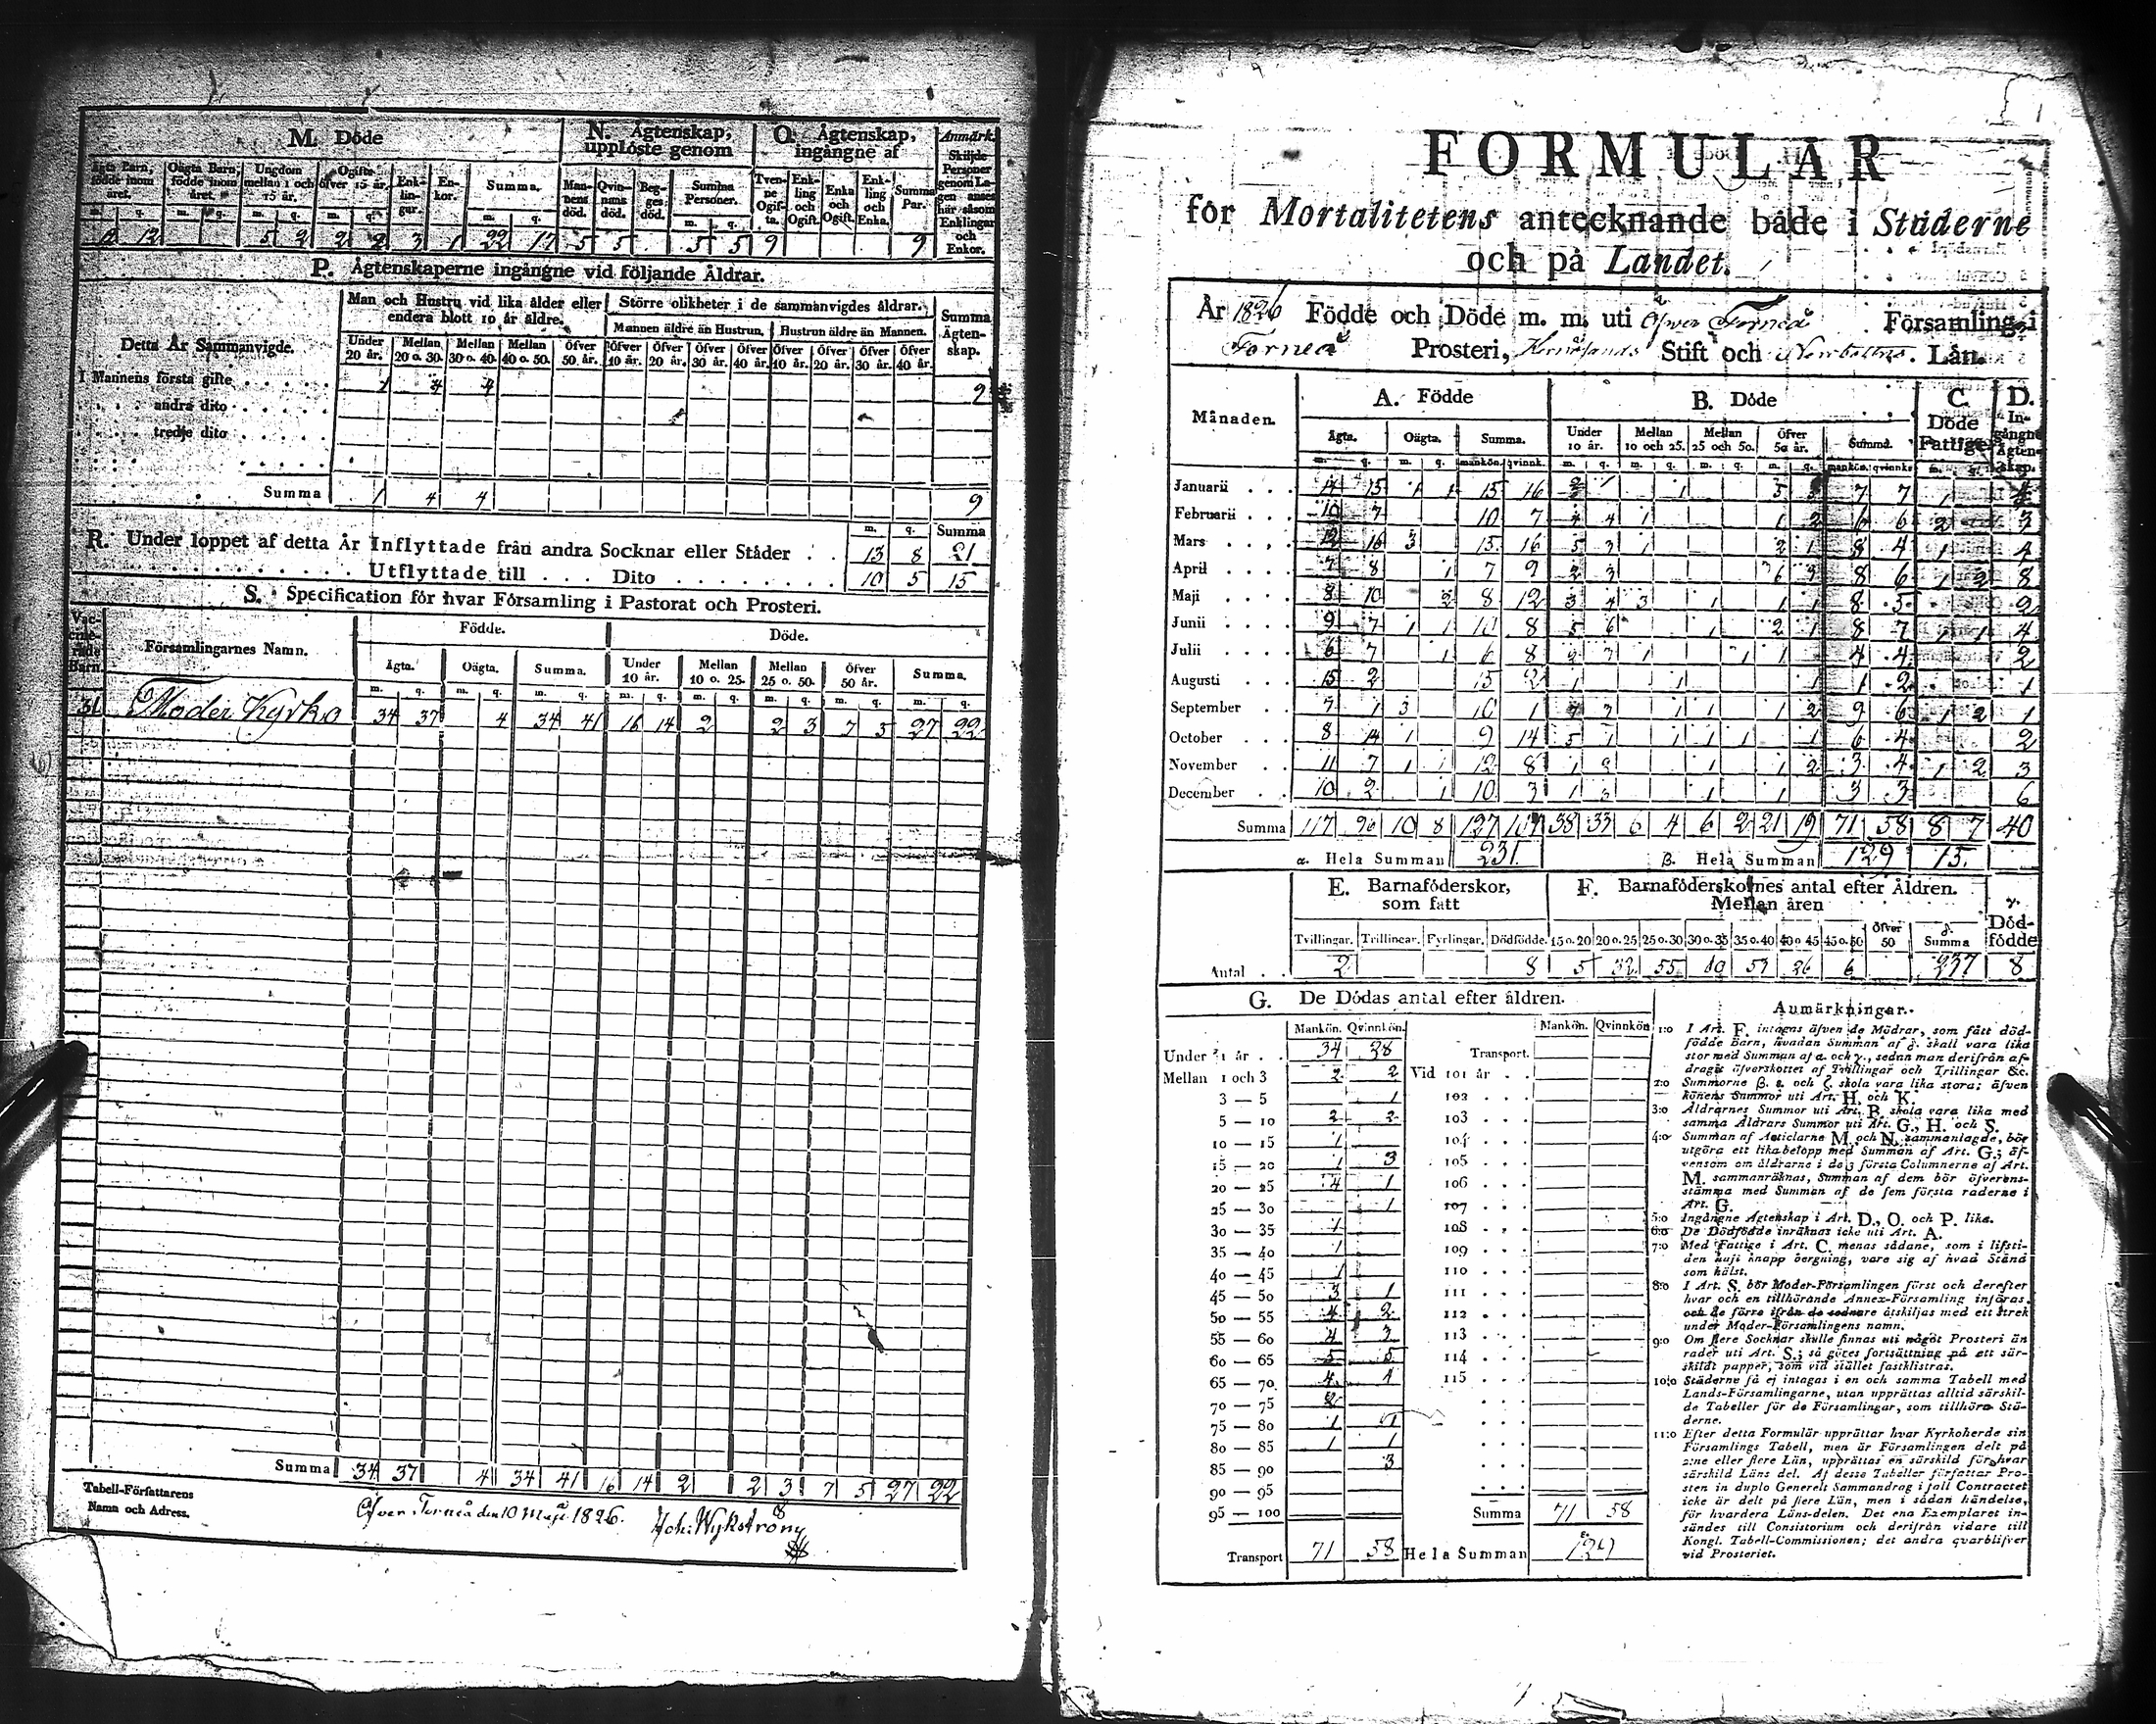 M. Döde
N. Ägtenskap, upplöste genom
O. Ägtenskap, ingångne af
Anmärk.
Ägta Barn, födde inom året.
Oägta Barn, födde inom året.
Ungdom mellan 1 och 15 år.
Ogifte öfver 15 år.
Enklingar.
Enkor.
Summa.
Mannens död.
Qvinnans död.
Begges död.
Summa Personer.
Tvenne Ogifta.
Enkling och Ogift.
Enka och Ogift.
Enkling och Enka.
Summa Par.
Skiljde Personer genom Lagen anses här såsom Enklingar och Enkor.
12 12 5 2 2 2 3 1 22 17 5 5 5 5 9 9
P. Ägtenskaperne ingångne vid följande Åldrar.
Detta År Sammanvigde.
Man och Hustru vid lika ålder eller endera blott 10 år äldre.
Större olikheter i de sammanvigdes åldrar.
Summa Ägtenskap.
Mannen äldre än Hustrun. Hustrun äldre än Mannen.
Under 20 år. Mellan 20 o. 30. Mellan 30 o. 40. Mellan 40 o. 50. Öfver 50. år. Öfver 10 år. Öfver 20 år. Öfver 30 år. Öfver 40 år. Öfver 10 år. Öfver 20 år. Öfver 30 år. Öfver 40 år.
I Mannens första gifte 1 4 4
andra dito
tredje dito
Summa 1 4 4 9
m. q. Summa
R. Under loppet af detta År Inflyttade från andra Socknar eller Städer 13 8 21
Utflyttade till Dito 10 5 15
S. Specification för hvar Församling i Pastorat och Prosteri.
Vaccinerade Barn.
Församlingarnes Namn.
Födde. Döde.
Ägta. Oägta. Summa. Under 10 år. Mellan 10 o. 25. Mellan 25 o. 50. Öfver 50 år. Summa.
m. q. m. q. m. q. m. q. m. q. m. q. m. q. m. q.
31 Moder Kyrko 34 37 4 34 41 16 14 2 2 3 7 5 27 22
Summa 34 37 4 34 41 16 14 2 2 3 7 5 27 22
Tabell-Författarens
Namn och Adress.
Öfver Torneå den 10 Maji 1826.
Joh: Wykström
FORMULAR
för Mortalitetens antecknande både i Städerne
och på Landet.
År 1826 Födde och Döde m. m. uti Öfver Torneå Församling, i
Torneå Prosteri, Hernösands Stift och Norrbottns Län.
Månaden.
A. Födde
B. Döde
C. Döde Fattige.
D. Ingångne Ägtenskap.
Ägta. Oägta. Summa. Under 10 år. Mellan 10 och 25. Mellan 25 och 50. Öfver 50 år. Summa.
m. q. m. q. mankön. qvinnk. m. q. m. q. m. q. m. q. mankön. qvinnk. m. q.
Januarii 14 15 1 1 15 16 1 1 5 7 7 1
Februarii 10 7 10 7 4 4 1 1 2 6 6 2 3
Mars 12 16 3 15 16 5 3 1 2 1 8 4 1 4
April 7 8 1 7 9 2 3 6 3 8 6 1 2 8
Maji 8 10 2 8 12 3 4 3 1 1 1 8 5 2
Junii 9 7 1 1 10 8 5 6 1 2 1 8 7 1 1 4
Julii 6 7 1 6 8 2 3 1 1 1 4 4 2
Augusti 15 2 15 2 1 1 1 1 2 1
September 7 1 3 10 1 3 1 1 1 2 9 6 1 2 1
October 8 14 1 9 14 5 1 1 1 1 1 6 4 2
November 11 7 1 1 12 8 1 2 1 1 2 3 4 1 2 3
December 10 2 1 10 3 1 3 1 1 3 3 6
Summa 117 96 10 8 127 104 38 33 6 4 6 2 21 19 71 58 8 7 40
α. Hela Summan 231
β. Hela Summan 129 15.
E. Barnaföderskor, som fått
F. Barnaföderskornes antal efter Åldren. Mellan åren
γ. Dödfödde
Tvillingar. Trillingar. Fyrlingar. Dödfödde. 15 o. 20 20 o. 25 25 o. 30 30 o. 35 35 o. 40 40 o 45 45 o. 50 Öfver 50 δ. Summa
Antal 2 8 5 32 55 53 26 6 237 8
G. De Dödas antal efter åldren.
Mankön. Qvinnkön. Mankön. Qvinnkön
Under 1 år 34 28 Transport.
Mellan 1 och 3 2 2 Vid 101 år
3 — 5 1 102
5 — 10 2 2 103
10 — 15 1 104
15 — 20 1 3 105
20 — 25 4 1 106
25 — 30 1 107
30 — 35 1 108
35 — 40 1 109
40 — 45 1 110
45 — 50 3 1 111
50 — 55 4 2 112
55 — 60 4 3 113
60 — 65 5 5 114
65 — 70 4 4 115
70 — 75
75 — 80 1 1
80 — 85 1 1
85 — 90 3
90 — 95
95 — 100
Summa 71 58
Transport 71 58 Hela Summan 129
Anmärkningar.
1:0 I Art. F. intagas äfven de Mödrar, som fått död-
födde Barn, hvadan Summan af δ. skall vara lika
stor med Summan af α. och γ., sedan man derifrån af-
dragit öfverskottet af Tvillingar och Trillingar &c.
2:0 Summorne β. ε. och ζ. skola vara lika stora; äfven
könens Summor uti Art. H. och K.
3:0 Åldrarnes Summor uti Art. B. skola vara lika med
samma Åldrars Summor uti Art. G., H. och S.
4:0 Summan af Articlarne M. och N. sammanlagde, bör
utgöra ett lika belopp med Summan af Art. G.; äf-
vensom om åldrarne i de 3 första Columnerne af Art.
M. sammanräknas, Summan af dem bör öfverens-
stämma med Summan af de fem första raderne i
Art. G.
5:0 Ingångne Ägtenskap i Art. D., O. och P. lika.
6:0 De Dödfödde inräknas icke uti Art. A.
7:0 Med Fattige i Art. C. menas sådane, som i lifsti-
den haft knapp bergning, vare sig af hvad Stånd
som hälst.
8:0 I Art. S. bör Moder-Församlingen först och derefter
hvar och en tillhörande Annex-Församling införas
och de förre ifrån de sednare åtskiljas med ett streck
under Moder-Församlingens namn.
9:0 Om flere Socknar skulle finnas uti något Prosteri än
rader uti Art. S.; så göres fortsättning på ett sär-
skildt papper, som vid stället fastklistras.
10:0 Städerne få ej intagas i en och samma Tabell med
Lands-Församlingarne, utan upprättas alltid särskil-
de Tabeller för de Församlingar, som tillhöra Stä-
derne.
11:0 Efter detta Formulär upprättar hvar Kyrkoherde sin
Församlings Tabell, men är Församlingen delt på
2:ne eller flere Län, upprättas en särskild för hvar
särskild Läns del. Af desse Tabeller författar Pro-
sten in duplo Generelt Sammandrag i fall Contractet
icke är delt på flere Län, men i sådan händelse,
för hvardera Läns-delen. Det ena Exemplaret in-
sändes till Consistorium och derifrån vidare till
Kongl. Tabell-Commissionen; det andra qvarblifver
vid Prosteriet.